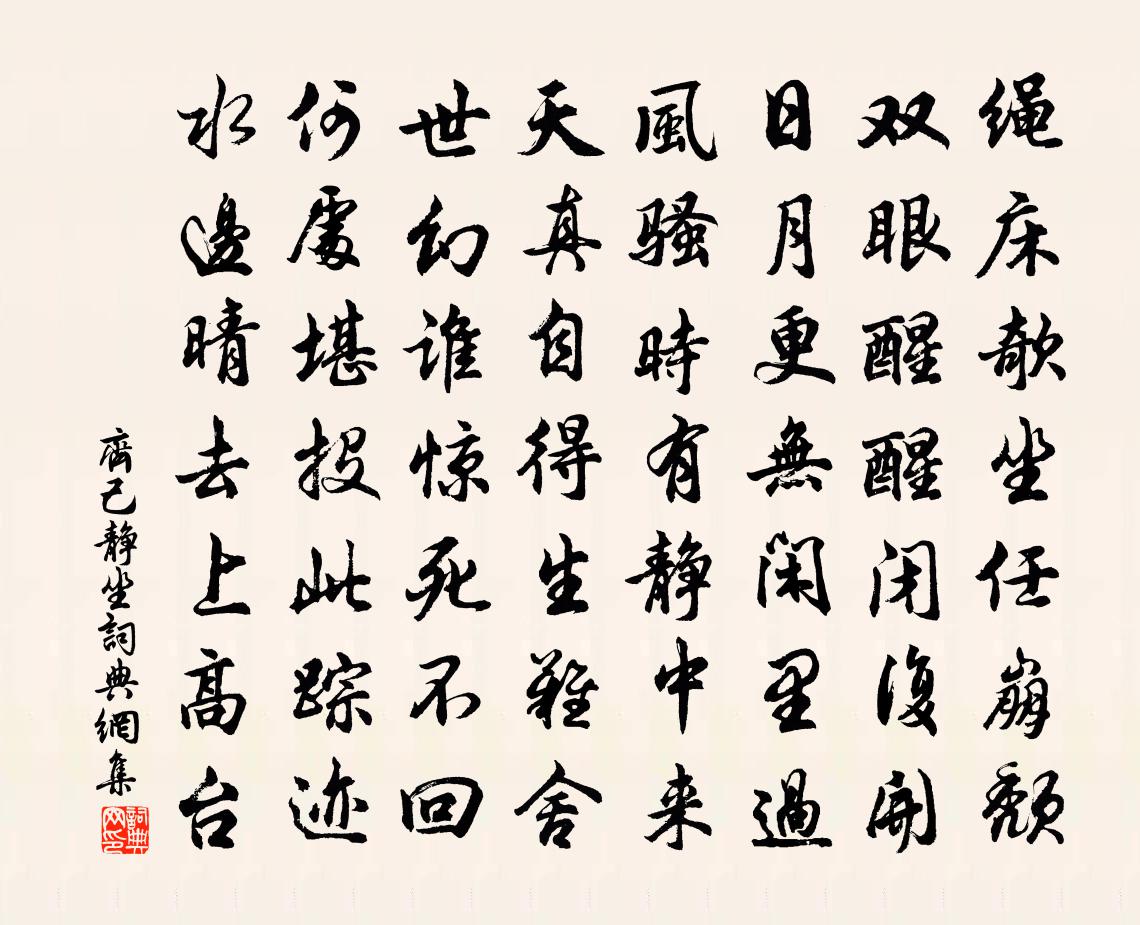 绳床欹坐任崩颓
双眼醒醒闭復開
日月更無闲里過
風骚時有静中来
天真自得生難舍
世幻谁惊死不回
何處堪投此踪迹
水邊晴去上高台
齊己静坐詞典網集
詞典网印